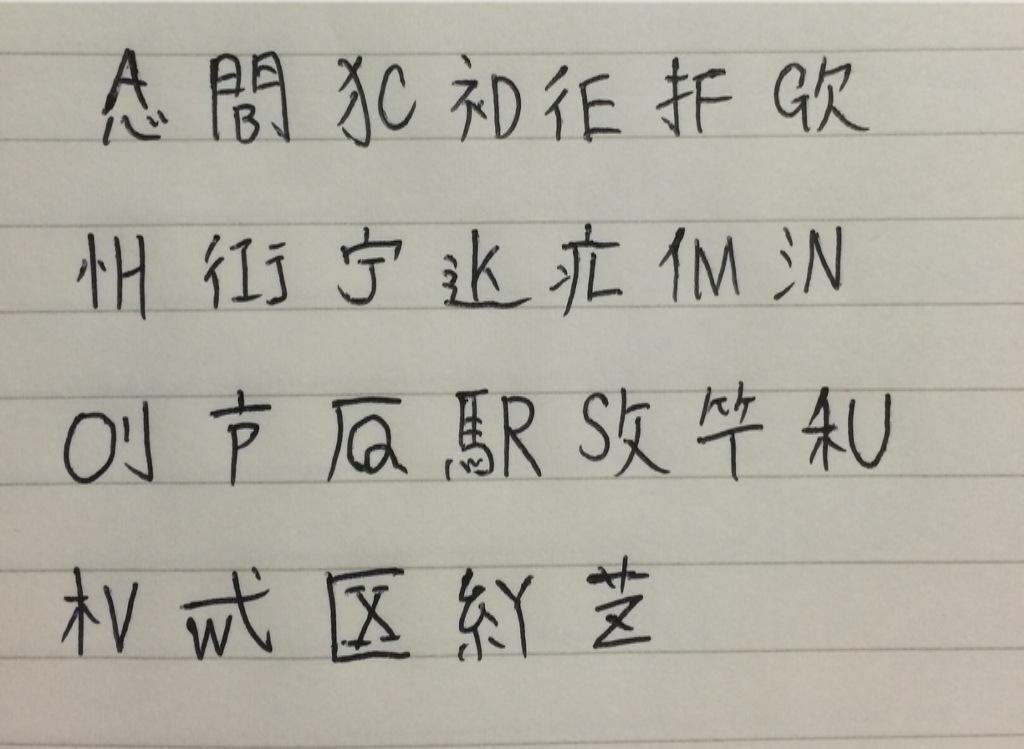 A心 門B 犭C 礻D 彳E 扌F G欠
忄H 行I 宀J 辶K 疒L 亻M 氵N
O刂 亠P 厂Q 馬R S攵 竹T 禾U
木V 弋W 匚X 糸Y 艹Z